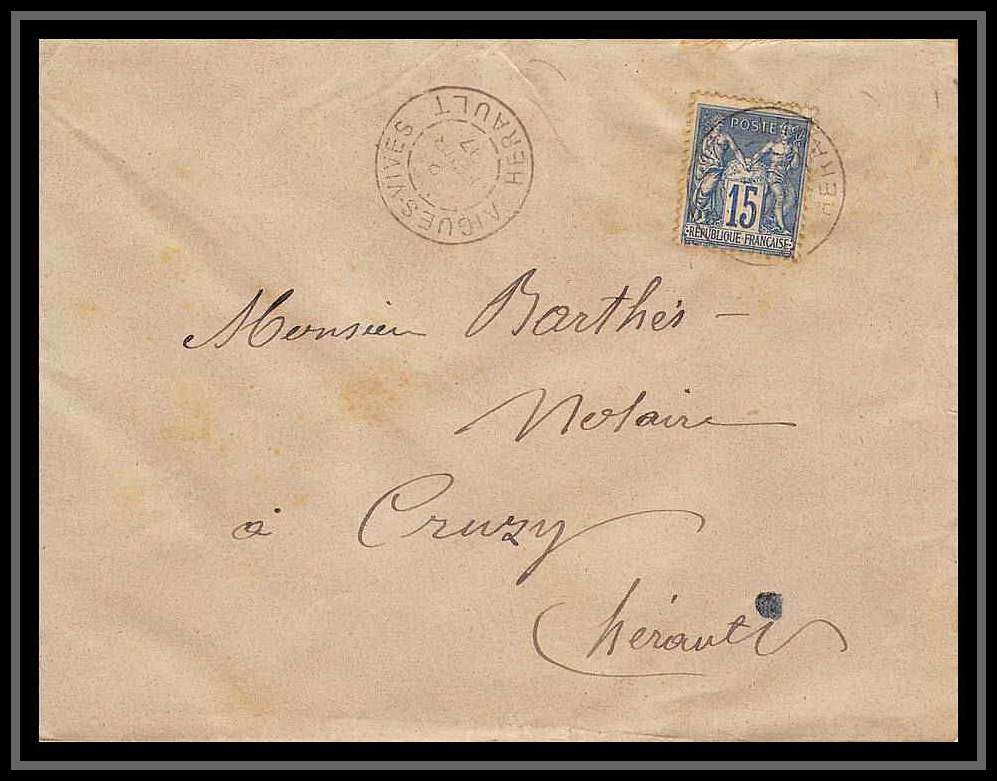 AIGUES-VIVES
HERAULT
17
POSTES
15
RÉPUBLIQUE FRANÇAISE
HERA
Monsieur Barthés -
Notaire
à Cruzy
hérault